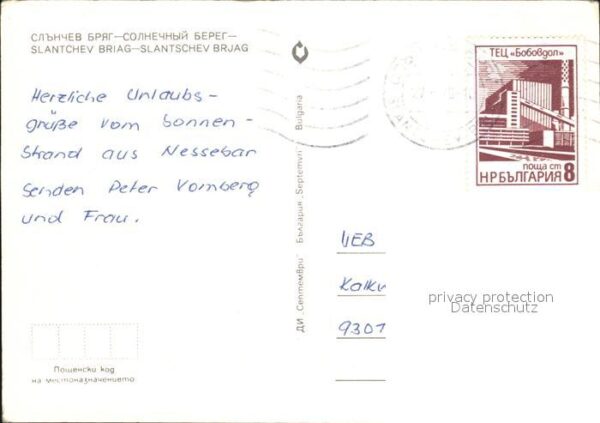 СЛЪНЧЕВ БРЯГ—СОЛНЕЧНЫЙ БЕРЕГ—
SLANTCHEV BRIAG—SLANTSCHEV BRJAG
Herzliche Urlaubs-
grüße vom Sonnen-
Strand aus Nessebar
senden Peter Vomberg
und Frau.
Пощенски код
на местоназначението
ДИ „Септември" България „Septemvri" Bulgaria
ТЕЦ „Бобовдол"
поща ст
НРБЪЛГАРИЯ 8
VEB
9301
privacy protection
Datenschutz